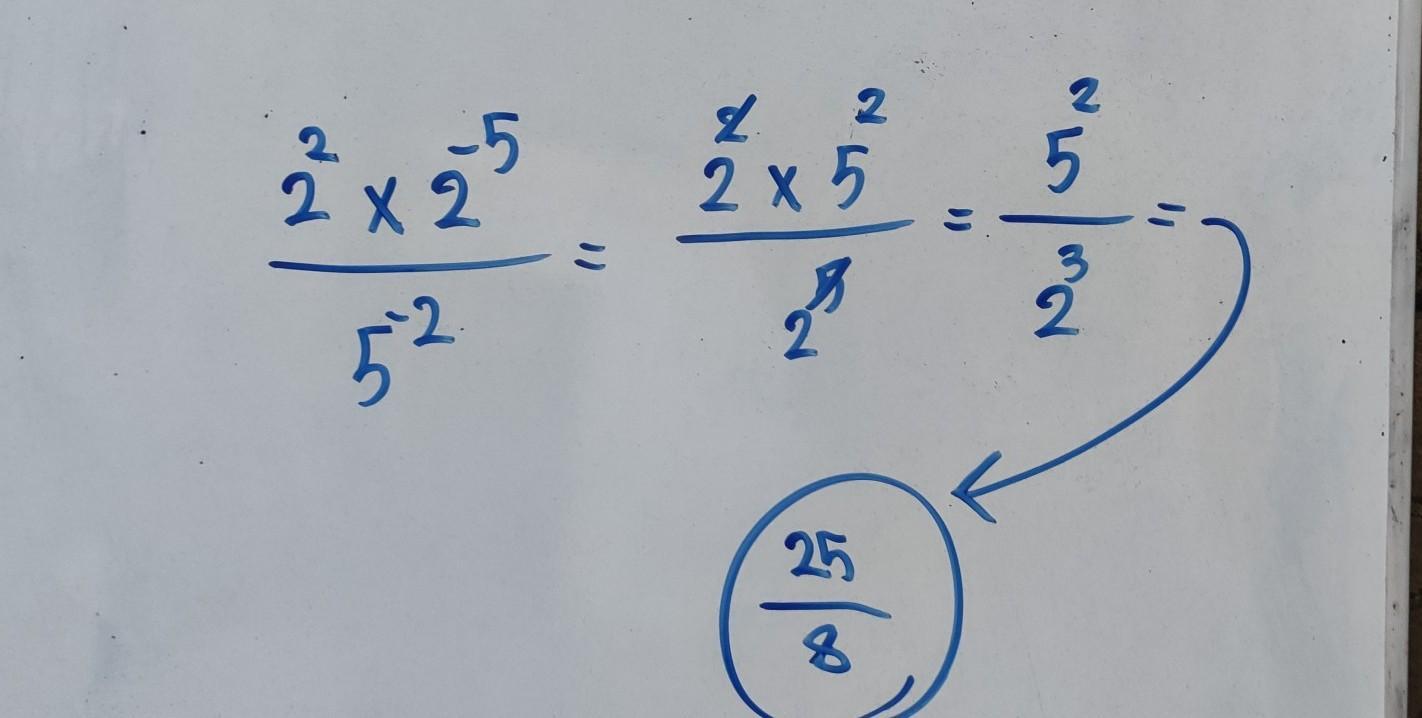 2² x 2⁻⁵ / 5⁻² = 2² x 5² / 2⁵ = 5² / 2³ =
25 / 8